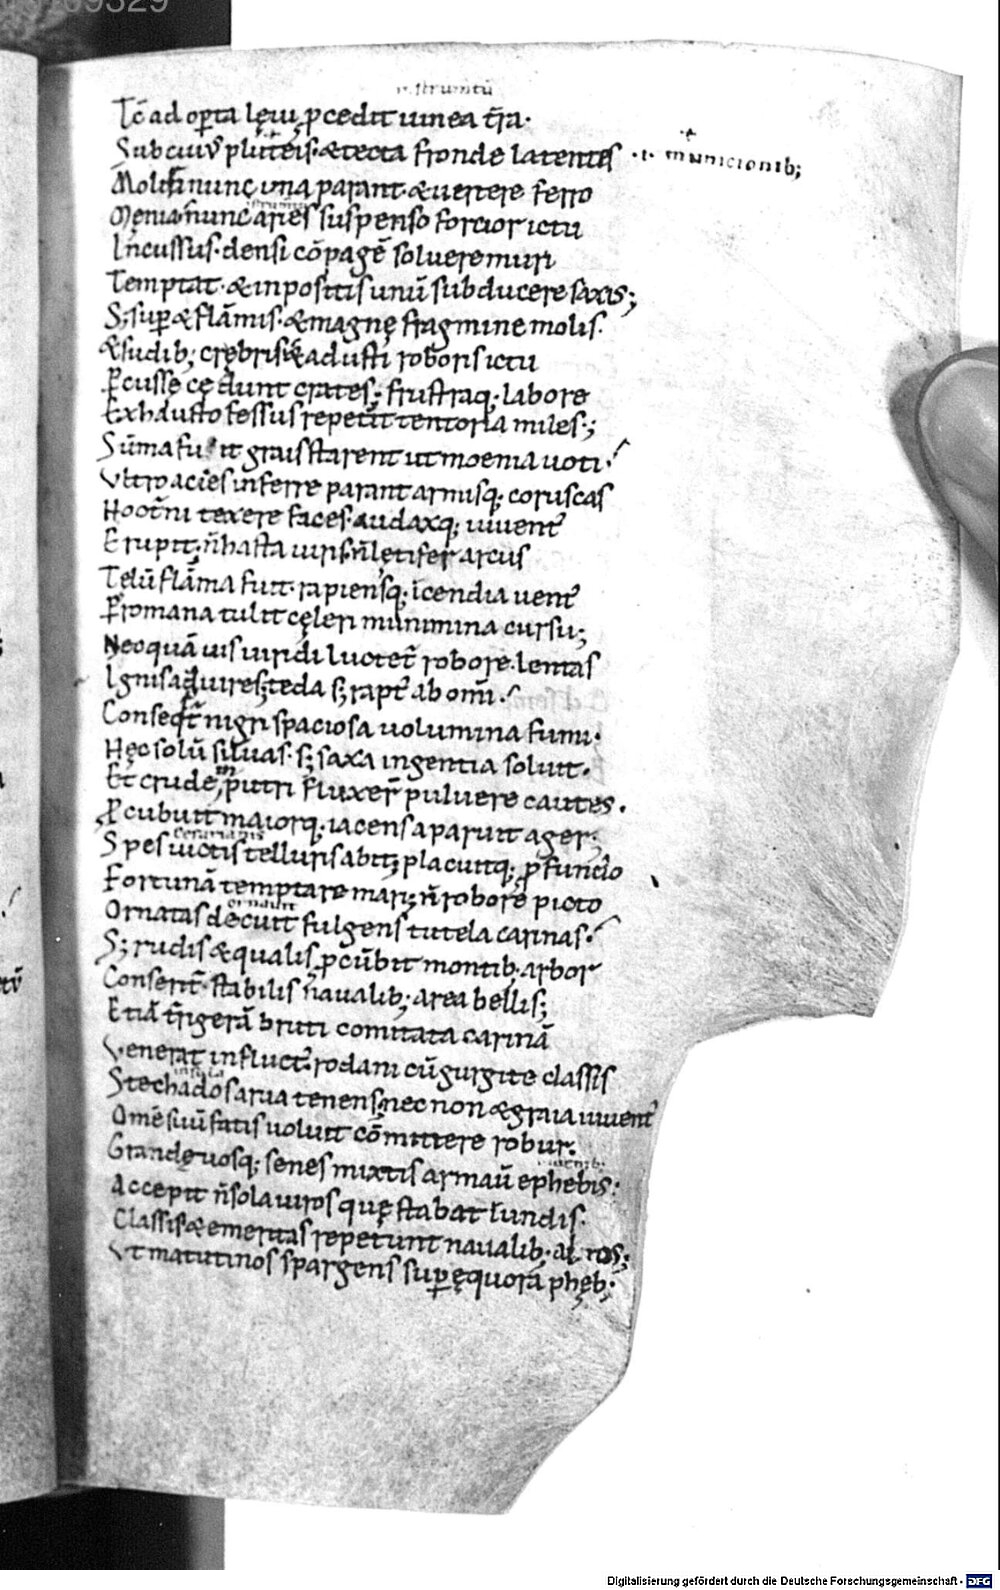 instrumtū
Tc̄ ad oꝑta lęuı ꝓcedit uinea t̄ra·
Sub cuiꝰ pluteis· & tecta fronde latentes ·i· municionib;
Moliri nunc ima parant· & uertere ferro
Męnia· nunc aries suspenso forcior ictu
Incussus· densi cōpagē soluere muri
Temptat· & inpositis unū subducere saxis;
S; suꝑ & flāmis· & magnę fragmine molis·
& sudib; crebris & adusti roboris ictu
ꝑcussę cedunt crates; frustraq; labore
Exhausto fessus repetit tentoria miles;
Sūma fuit grais starent ut moenia uoti·
Vltro acies inferre parant armisq; coruscas
Noct̄ni texere faces· audaxq; iuuent̄
Erupit; n̄ hasta uiris n̄ lętifer arcus
Telū flāma fuit· rapiensq; īcendia uent̄
ꝑ romana tulit cęleri munimina cursu;
Nec quā uis uiridi luctet̄ robore· lentas
Ignis agit uires; teda s; rapt̄ ab omī·
Conseq̄t̄ nigri spaciosa uolumina fumi·
Nec solū siluas· s; saxa ingentia soluit·
Et crude putri fluxer̄ puluere cautes·
ꝓcubuit maiorq; iacens aparuit ager;
Spes uictis telluris abit; placuitq; ꝓfundo
Fortunā temptare mari; n̄ robore picto
ornauit
Ornatas decuit fulgens tutela carinas·
S; rudis & qualis ꝓcūbit montib; arbor
Conserit̄· stabilis naualib; area bellis;
Et iā t̄rigerā bruti comitata carinā
Venerat in fluct̄ rodani cū gurgite classis
insula
Stechados arua tenens; nec non & graia iuuent̄
Omē suū fatis uoluit cōmittere robur·
Grandęuosq; senes mixtis armauī ephebis·
Accepit n̄ sola uiros quę stabat ī undis·
Classis & emeritas repetunt naualib; al nos;
Vt matutinos spargens suꝑ ęquora phęb;
Digitalisierung gefördert durch die Deutsche Forschungsgemeinschaft - DFG